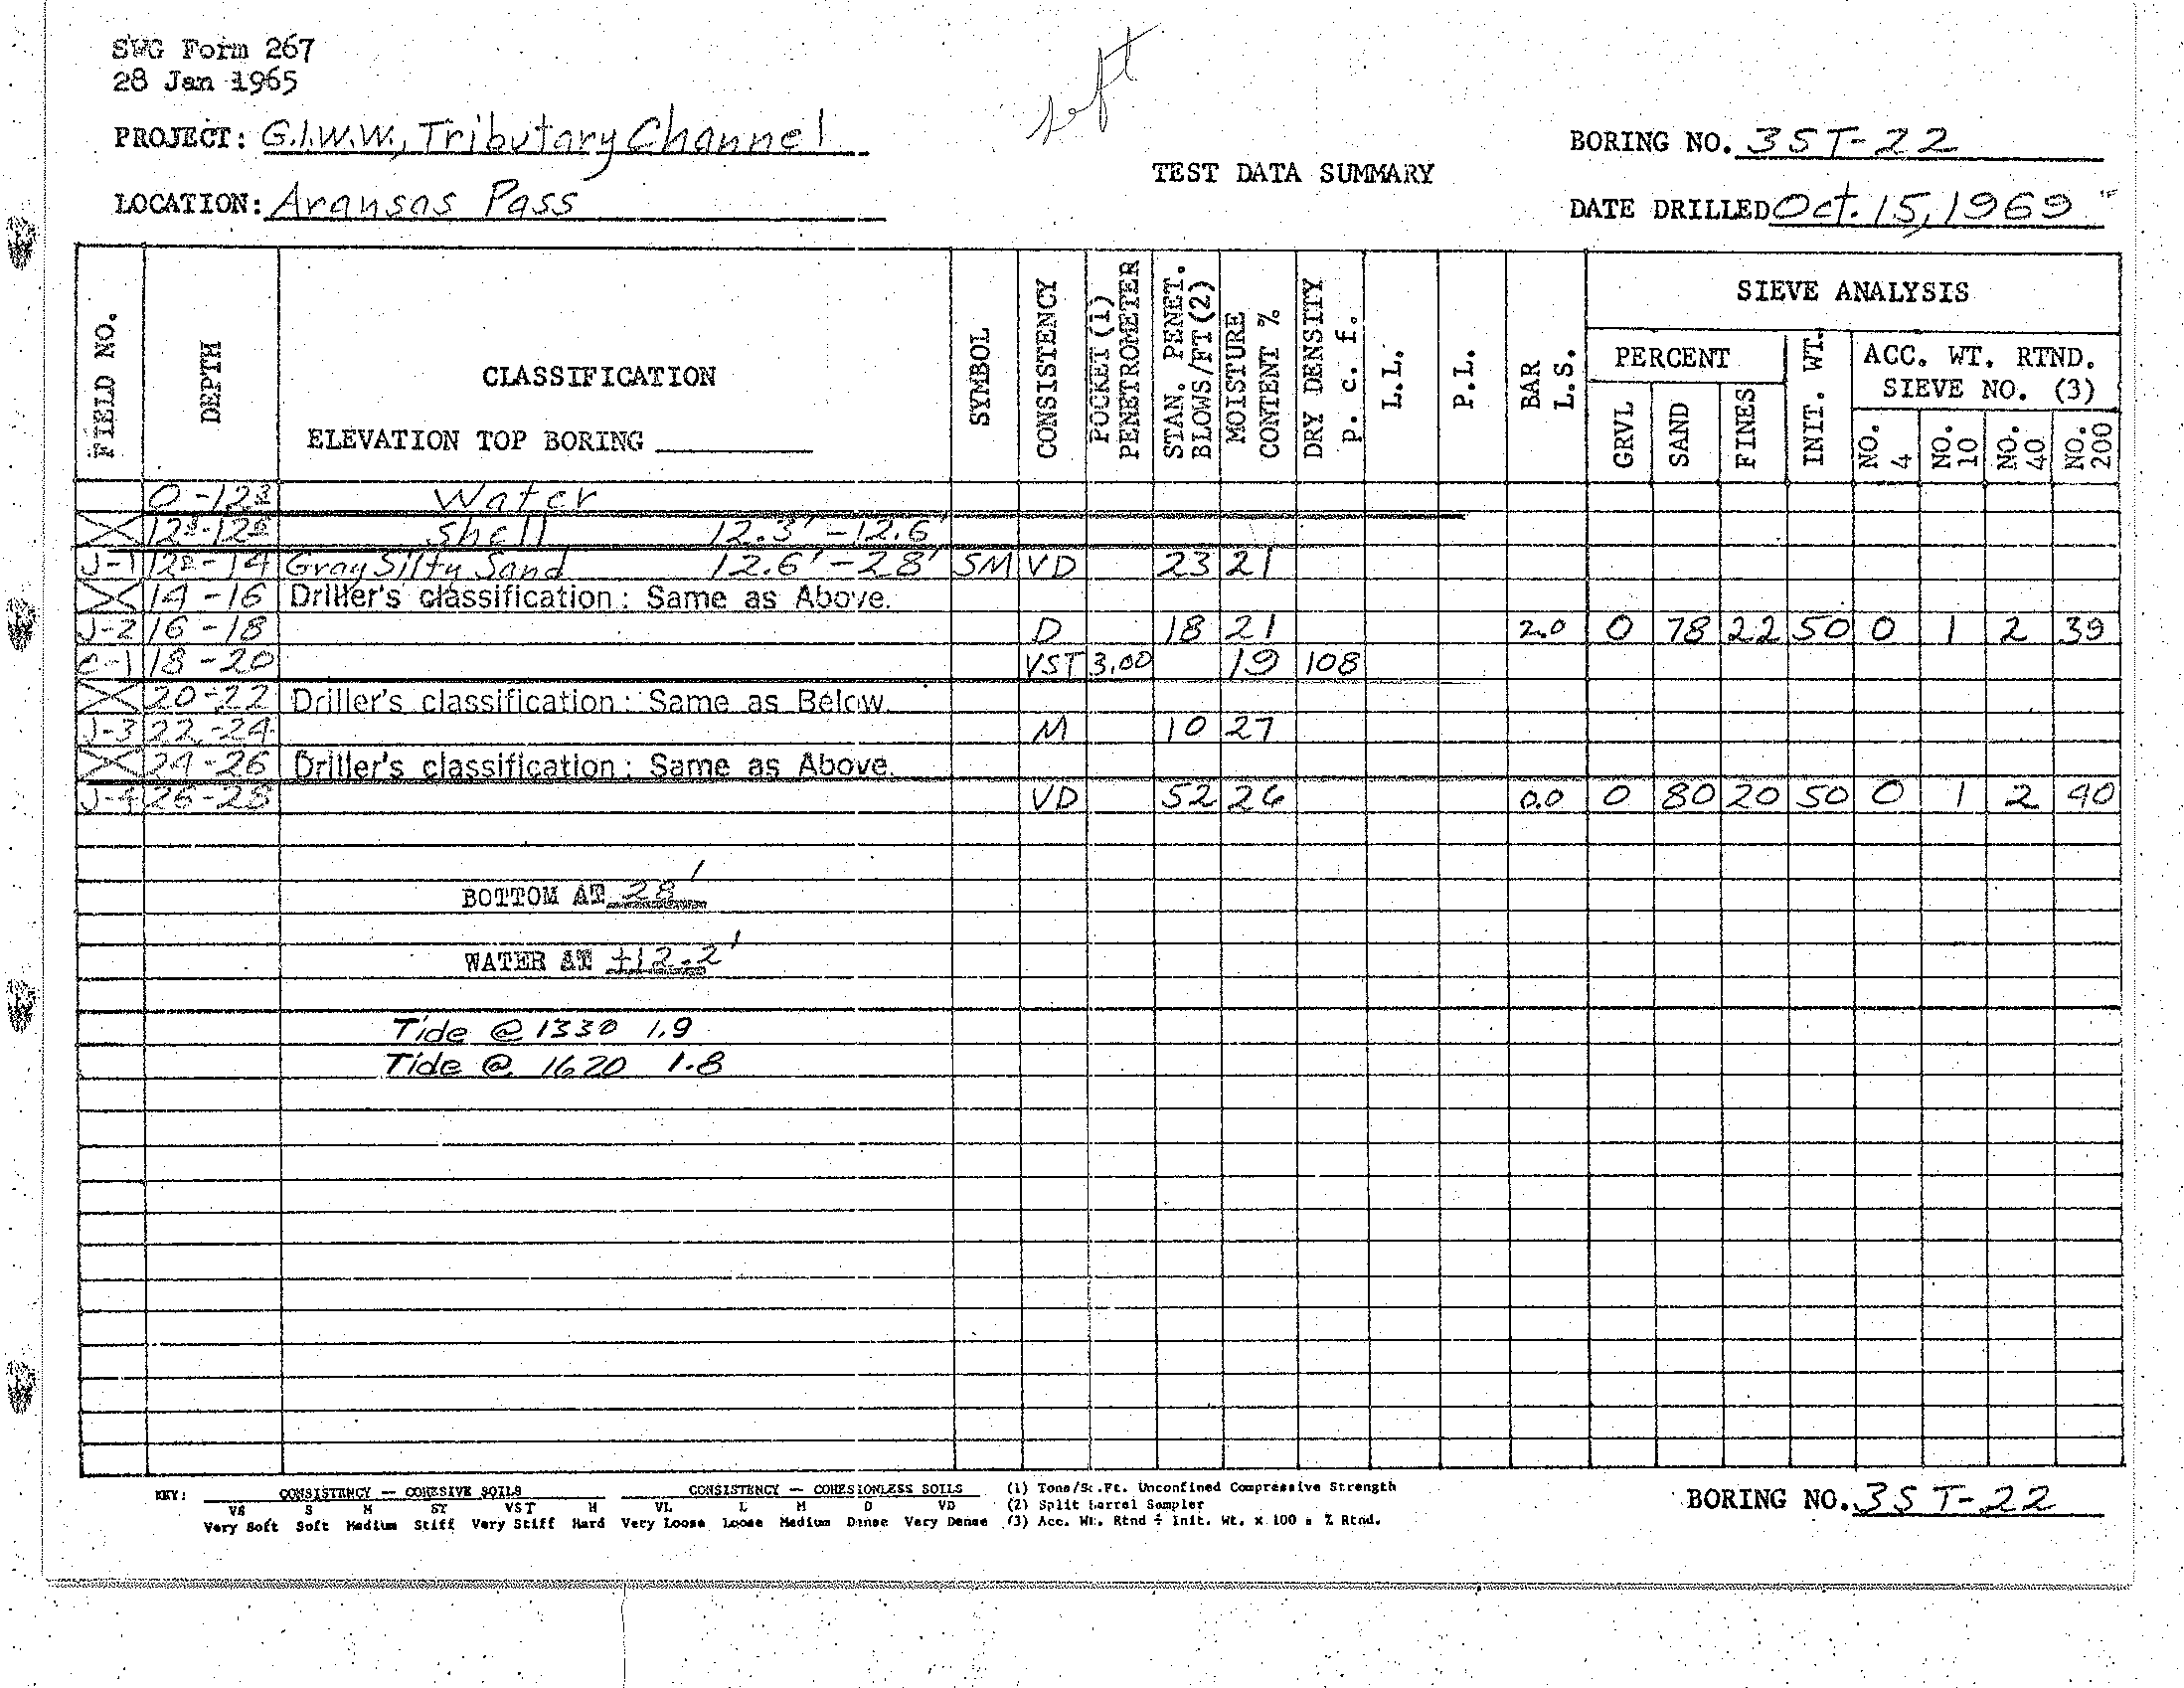 SWG Form 267
28 Jan 1965
left
PROJECT: G.I.W.W., Tributary Channel
BORING NO. 3ST-22
TEST DATA SUMMARY
LOCATION: Aransas Pass
DATE DRILLED Oct. 15, 1969
FIELD NO. DEPTH CLASSIFICATION SYMBOL CONSISTENCY POCKET (1) PENETROMETER STAN. PENET. BLOWS/FT(2) MOISTURE CONTENT % DRY DENSITY p. c. f. L.L. P.L. BAR L.S. SIEVE ANALYSIS
PERCENT INIT. WT. ACC. WT. RTND. SIEVE NO. (3)
ELEVATION TOP BORING
GRVL SAND FINES NO. 4 NO. 10 NO. 40 NO. 200
0-12.3 Water
12.3-12.6 Shell 12.3'-12.6'
J-1 12.6-14 Gray Silty Sand 12.6'-28' SM VD 23 21
14-16 Driller's classification: Same as Above.
J-2 16-18 D 18 21 2.0 0 78 22 50 0 1 2 39
C-1 18-20 VST 3.00 19 108
20-22 Driller's classification: Same as Below.
J-3 22-24 M 10 27
24-26 Driller's classification: Same as Above.
J-4 26-28 VD 52 26 0.0 0 80 20 50 0 1 2 40
BOTTOM AT 28'
WATER AT +12.2'
Tide @ 1330 1.9
Tide @ 1620 1.8
KEY: CONSISTENCY — COHESIVE SOILS CONSISTENCY — COHESIONLESS SOILS (1) Tons/Sq.Ft. Unconfined Compressive Strength
VS S M ST VST H VL L M D VD (2) Split barrel Sampler
Very Soft Soft Medium Stiff Very Stiff Hard Very Loose Loose Medium Dense Very Dense (3) Acc. Wt. Rtnd ÷ Init. Wt. x 100 = % Rtnd.
BORING NO. 3ST-22